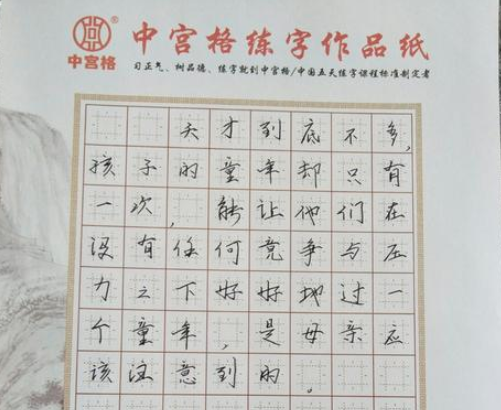 中宫格®
中宫格练字作品纸
习正气、树品德、练字就到中宫格/中国五天练字课程标准制定者
天才到底不多，
孩子的童年却只有
一次，能让他们在
没有任何竞争与压
力之下好好地过一
个童年，是母亲应
该注意到的。